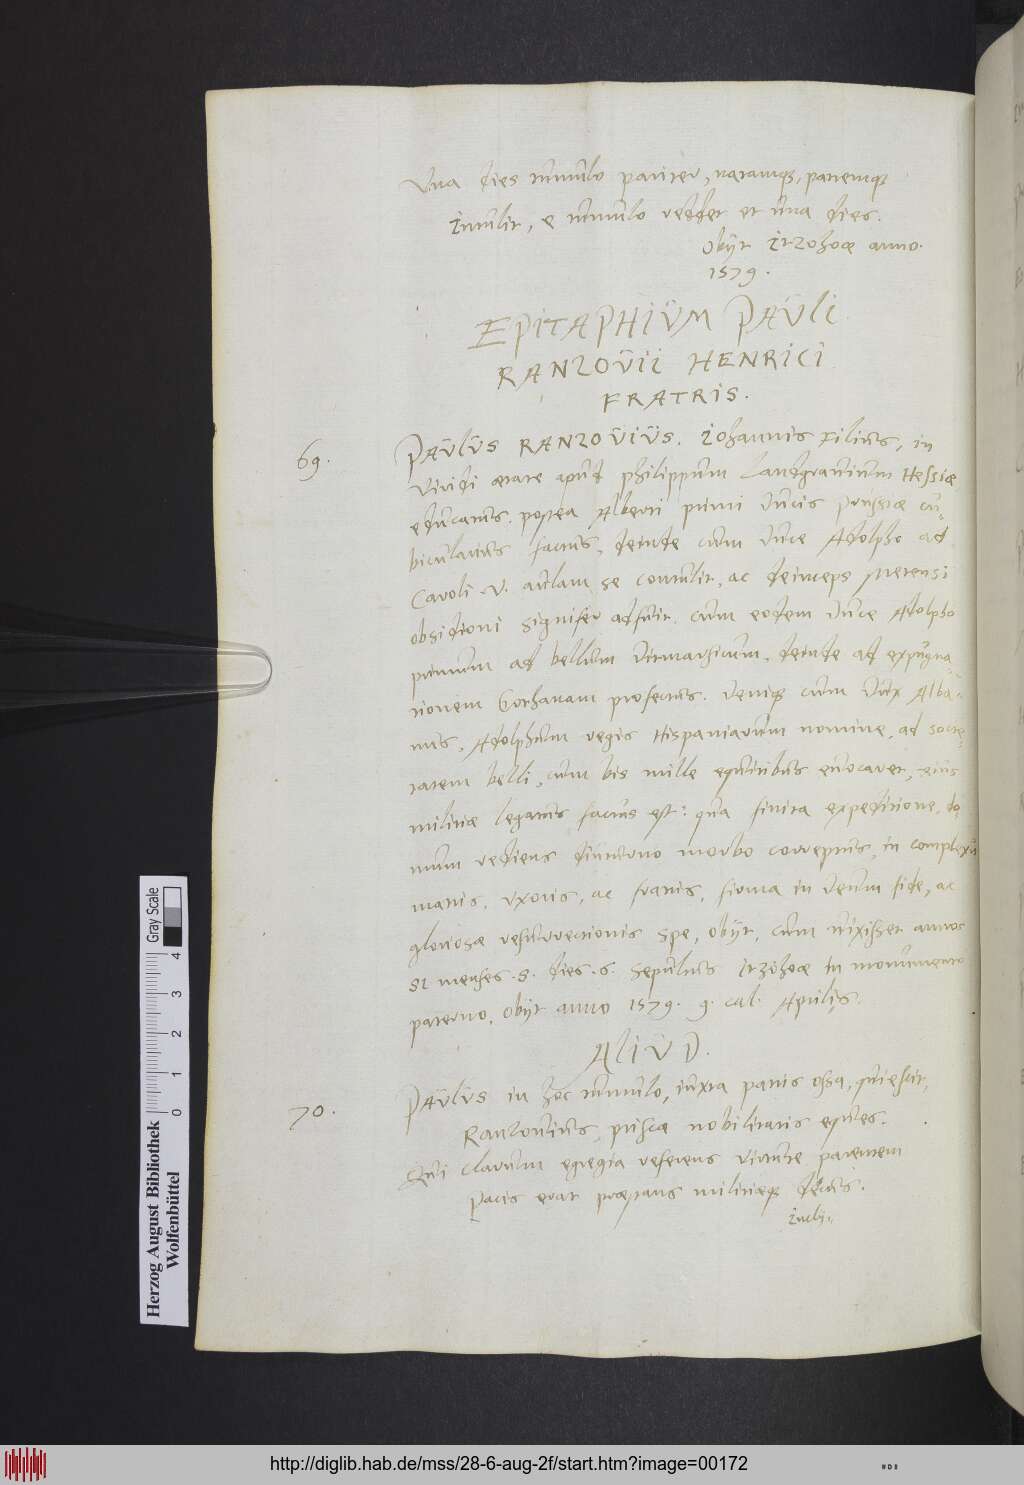 Una dies tumulo pariter, natamq̃, patremq̃
Intulit, e tumulo reddet et una dies.
Obijt Itzohoæ anno.
1579.
EPITAPHIUM PAULI
RANZOVII HENRICI
FRATRIS.
69.
PAULUS RANZOVIUS. Iohannis Filius, in
Viridi ætate apud Philippum Landgravium Hessiæ
educatus. postea Alberti primi Ducis Prussiæ cu-
bicularius factus, deinde cum Duce Adolpho ad
Caroli .V. aulam se contulit, ac deinceps Metensi
obsidioni signifer adfuit. cum eodem Duce Adolpho
primum ad bellum Ditmarsicum, deinde ad expugna-
tionem Gothanam profectus. Deniq̃ cum Dux Alba-
nus, Adolphum regis Hispaniarum nomine, ad socie-
tatem belli, cum bis mille equitibus euocaret, eius
militiæ legatus factus est: qua finita expeditione, do-
mum rediens diuturno morbo correptus, in complexu
matris, uxoris, ac fratris, firma in Deum fide, ac
gloriosæ resurrectionis spe, obijt, cum uixisset annos
51 menses .5. dies .6. Sepultus Itzohoæ in monumento
paterno, Obijt anno 1579. 9. cal. Aprilis.
ALIUD.
70.
PAULUS in hoc tumulo, iuxta patris ossa, quiescit,
Ranzouius, priscæ nobilitatis eques.
Qui clarum egregia referens virtute parentem
Pacis erat præstans militiæq̃ decus.
Incly..
Herzog August Bibliothek
Wolfenbüttel
0 1 2 3 4
Gray Scale
http://diglib.hab.de/mss/28-6-aug-2f/start.htm?image=00172